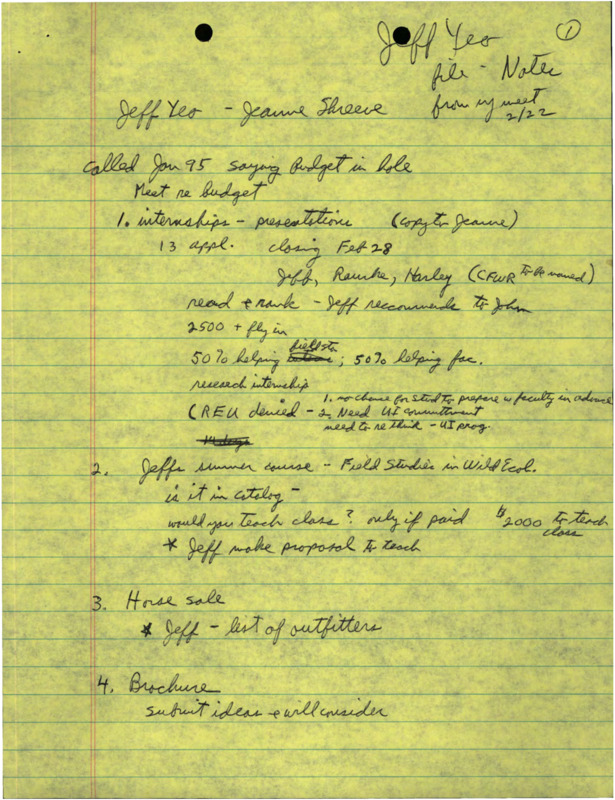 Jeff Yeo
1
file - Notes
from my meet
2/22
Jeff Yeo - Jeanne Shreeve
Called Jan 95 saying Budget in hole
Meet re budget
1. internships - presentations (copy to Jeanne)
13 appl. closing Feb 28
Jeff, Rourke, Harley (CFWR to be named)
read & rank - Jeff recommends to John
2500 + fly in
field sta
50% helping ; 50% helping fac.
research internship
1. no chance for stud to prepare w faculty in advance
(REU denied - 2. Need UI commitment
need to rethink - UI prog.
2. Jeffs summer course - Field Studies in Wild Ecol.
is it in catalog -
would you teach class? only if paid $2000 to teach
class
* Jeff make proposal to teach
3. Horse sale
* Jeff - list of outfitters
4. Brochure
submit ideas & will consider